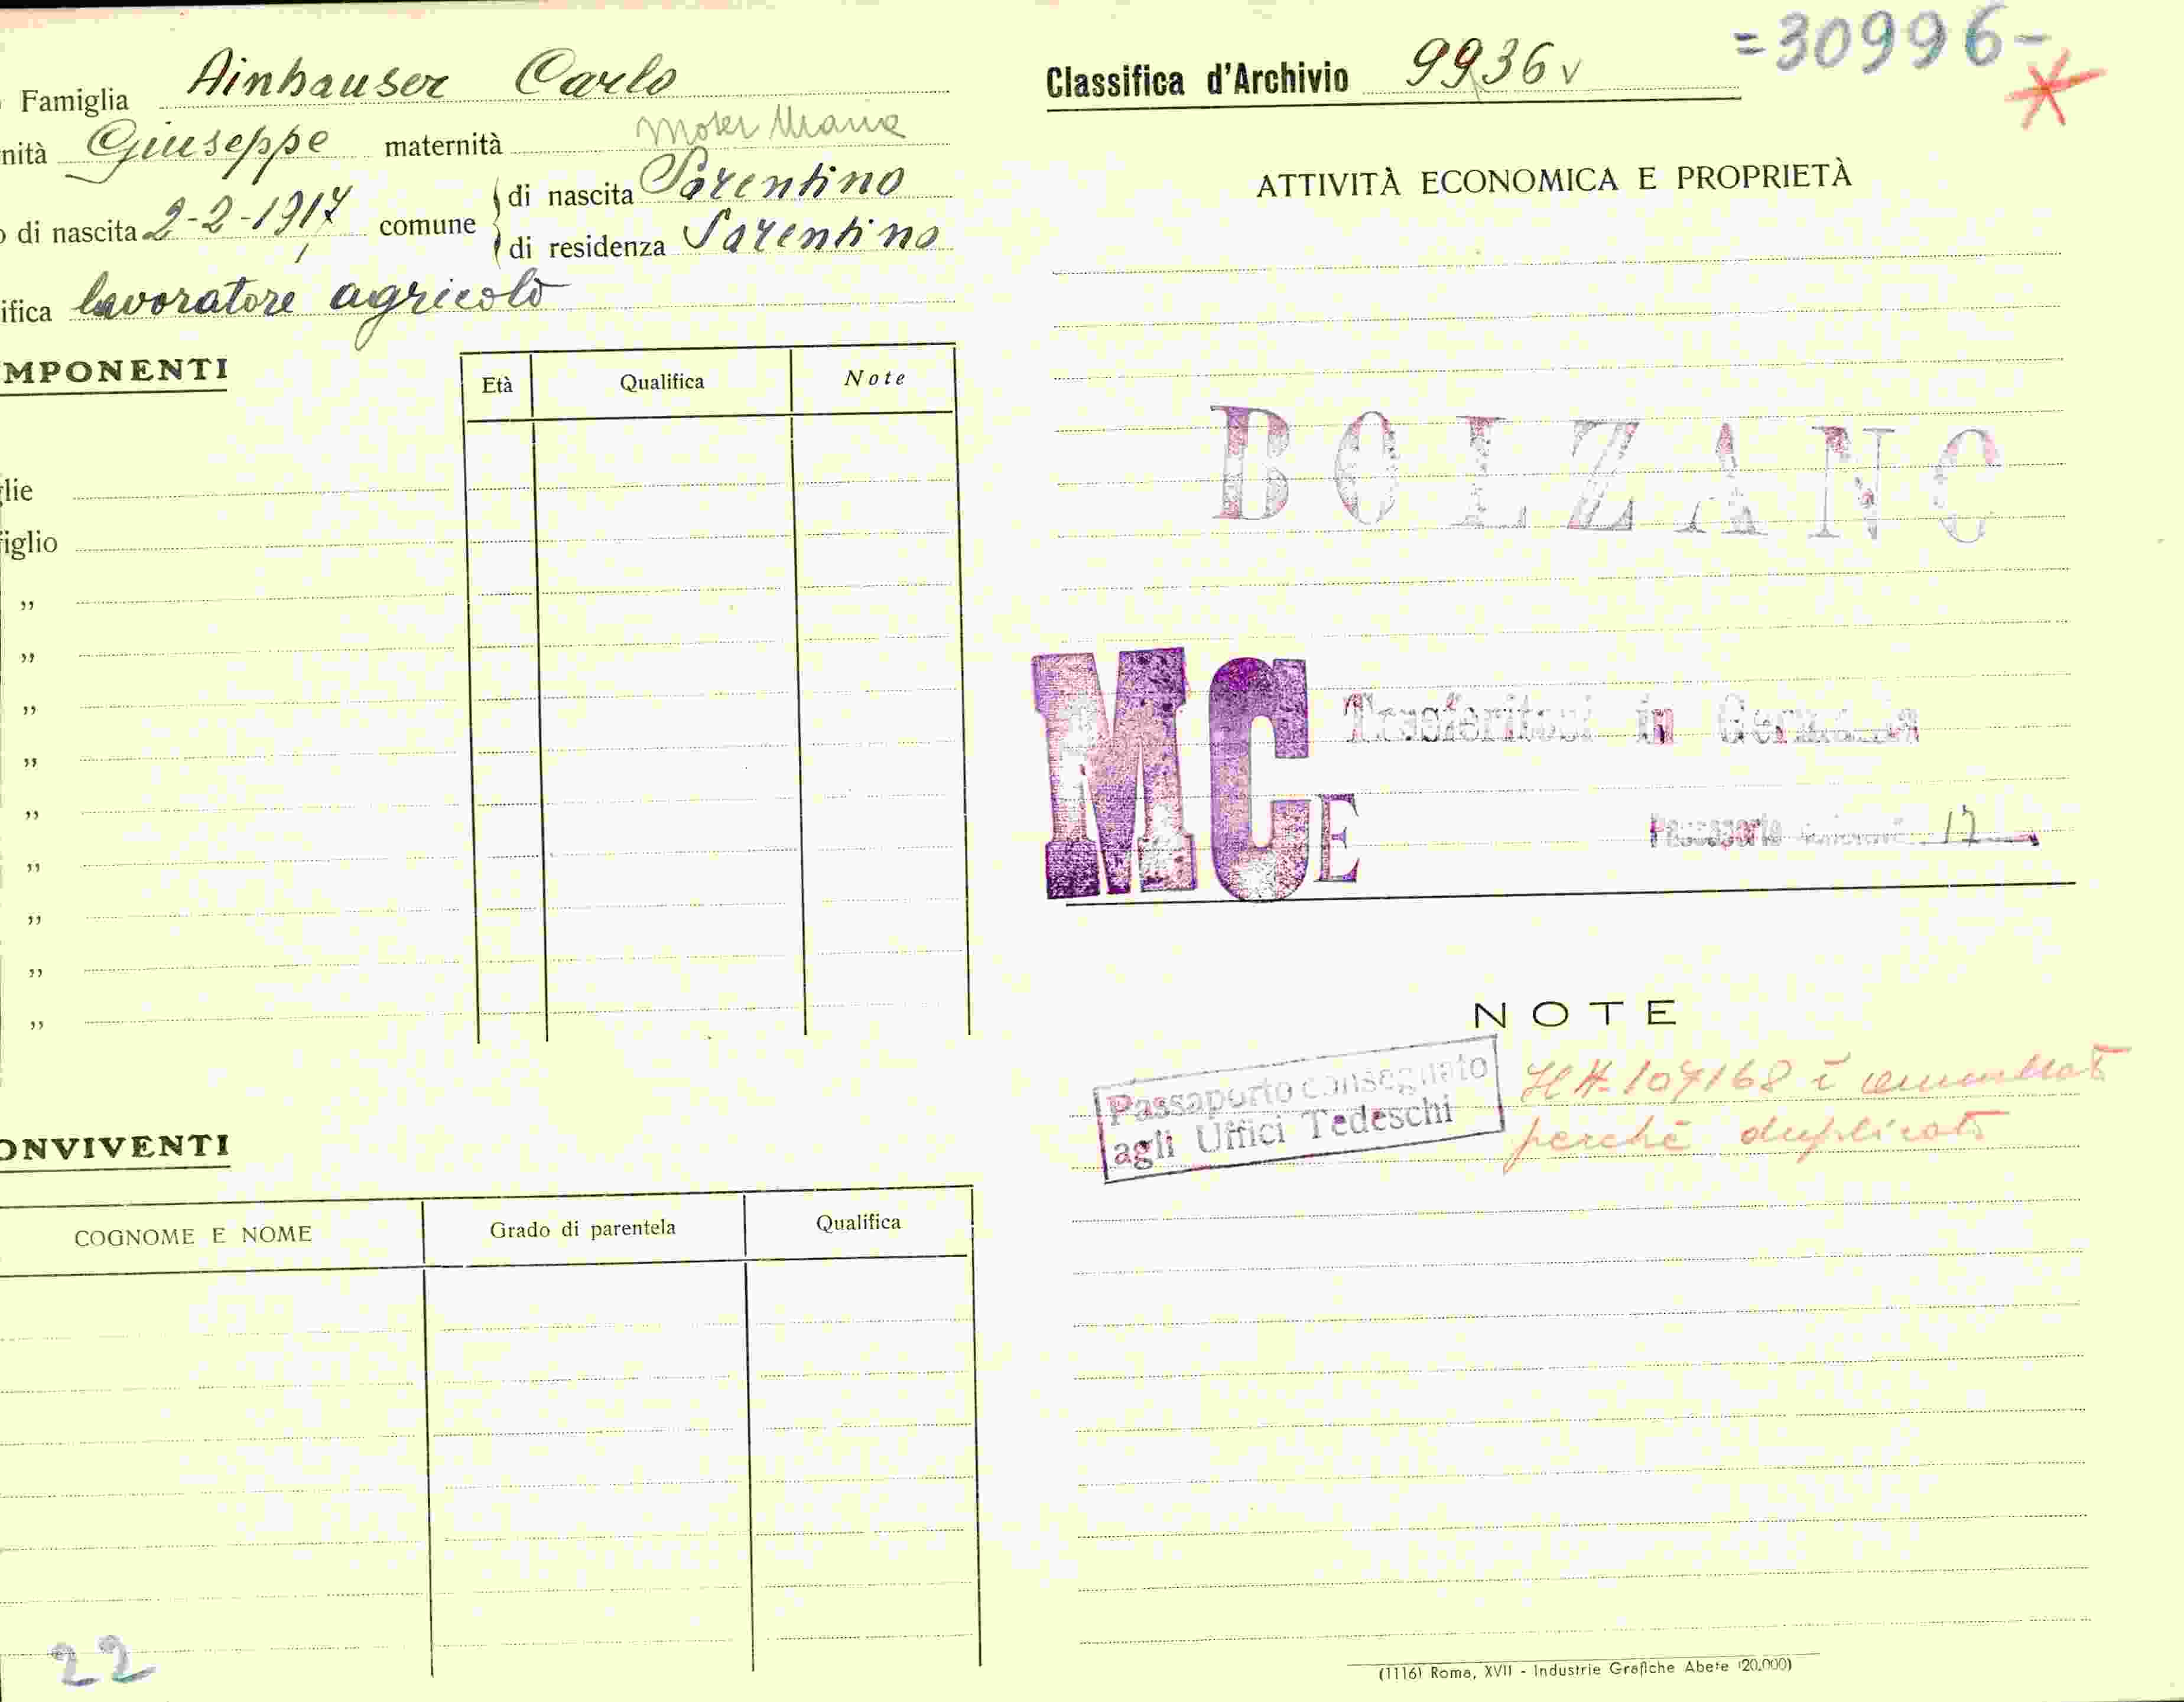 Famiglia Ainhauser Carlo
nità Giuseppe maternità Moser Maria
di nascita 2-2-1917 comune di nascita Sarentino
di residenza Sarentino
ifica lavoratore agricolo
MPONENTI
Età Qualifica Note
glie
figlio
"
"
"
"
"
"
"
"
"
ONVIVENTI
COGNOME E NOME Grado di parentela Qualifica
22
=30996-
Classifica d'Archivio 9936 v
ATTIVITÀ ECONOMICA E PROPRIETÀ
BOLZANO
MCE Trasferitosi in Germania
Passaporto 17
NOTE
Passaporto consegnato
agli Uffici Tedeschi
107168 è
perchè duplicato
(1116) Roma, XVII - Industrie Grafiche Abete (20.000)